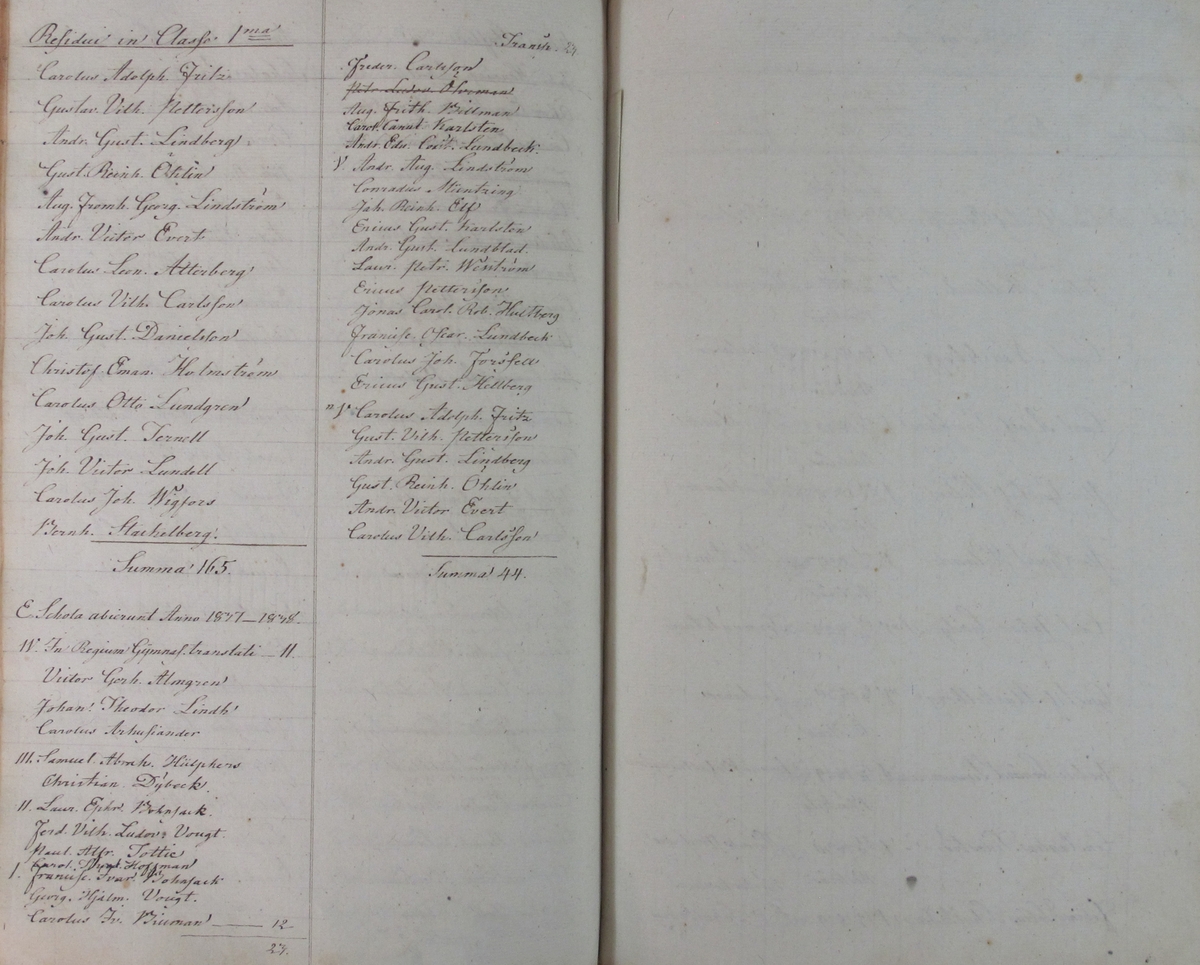 Residui in Classe 1ma
Carolus Adolph. Fritz
Gustav. Vilh. Pettersson
Andr. Gust. Lindberg
Gust. Reinh. Öhlin
Aug. Fromh. Georg. Lindström
Andr. Victor Evert
Carolus Leon. Atterberg
Carolus Vilh. Carlsson
Joh. Gust. Danielsson
Christof. Eman. Holmström
Carolus Otto Lundgren
Joh. Gust. Ternell
Joh. Victor Lundell
Carolus Joh. Wigfors
Bernh. Stackelberg.
Summa 165.
E Schola abierunt Anno 1837–1838.
IV. In Regium Gymnas. translati – 11.
Victor Gerh. Almgren
Johan Theodor Lindh
Carolus Arhusiander
III. Samuel Abrah. Hülphers
Christian Dybeck.
II. Laur. Ephr. Bohnsack.
Ferd. Vilh. Ludov. Vougt.
Paul. Alfr. Tottie
Carol. Hoffman
I. Francisc. Ivar Bohnsack
Georg. Hjalm. Vougt.
Carolus Fr. Biuman — 12
23.
Transp. 23
Freder. Carlsson
Petr. Ludov. Öhrman
Aug. Frith. Billman
Carol. Canut. Karlsten
Andr. Edv. Lundbeck.
V. Andr. Aug. Lindström
Conradus Müntzing
Joh. Reinh. Elf
Ericus Gust. Karlsten
Andr. Gust. Lundblad.
Laur. Petr. Wenström
Ericus Pettersson
Jonas Carol. Rob. Hultberg
Francisc. Oscar. Lundbeck
Carolus Joh. Forssell
Ericus Gust. Hellberg
Carolus Adolph. Fritz
Gust. Vilh. Pettersson
Andr. Gust. Lindberg
Gust. Reinh. Öhlin
Andr. Victor Evert
Carolus Vilh. Carlsson
Summa 44.